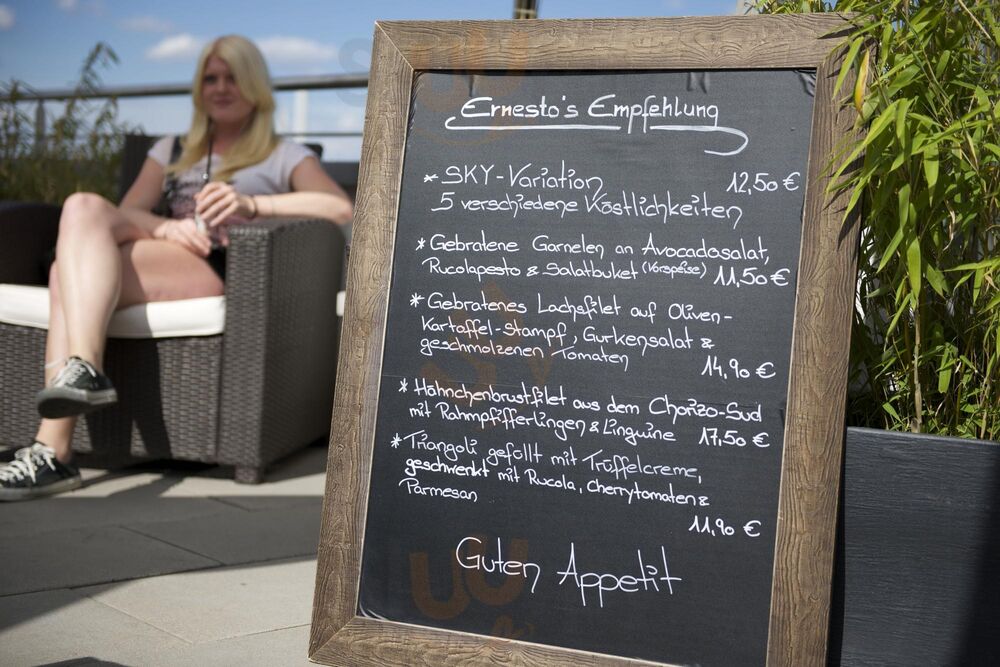 Ernesto's Empfehlung
* SKY-Variation 12,50 €
5 verschiedene Köstlichkeiten
* Gebratene Garnelen an Avocadosalat,
Rucolapesto & Salatbuket (Vorspeise) 11,50 €
* Gebratenes Lachsfilet auf Oliven-
Kartoffel-Stampf, Gurkensalat &
geschmolzenen Tomaten 14,90 €
* Hähnchenbrustfilet aus dem Chorizo-Sud
mit Rahmpfifferlingen & Linguine 17,50 €
* Triangoli gefüllt mit Trüffelcreme,
geschwenkt mit Rucola, Cherrytomaten &
Parmesan 11,90 €
Guten Appetit